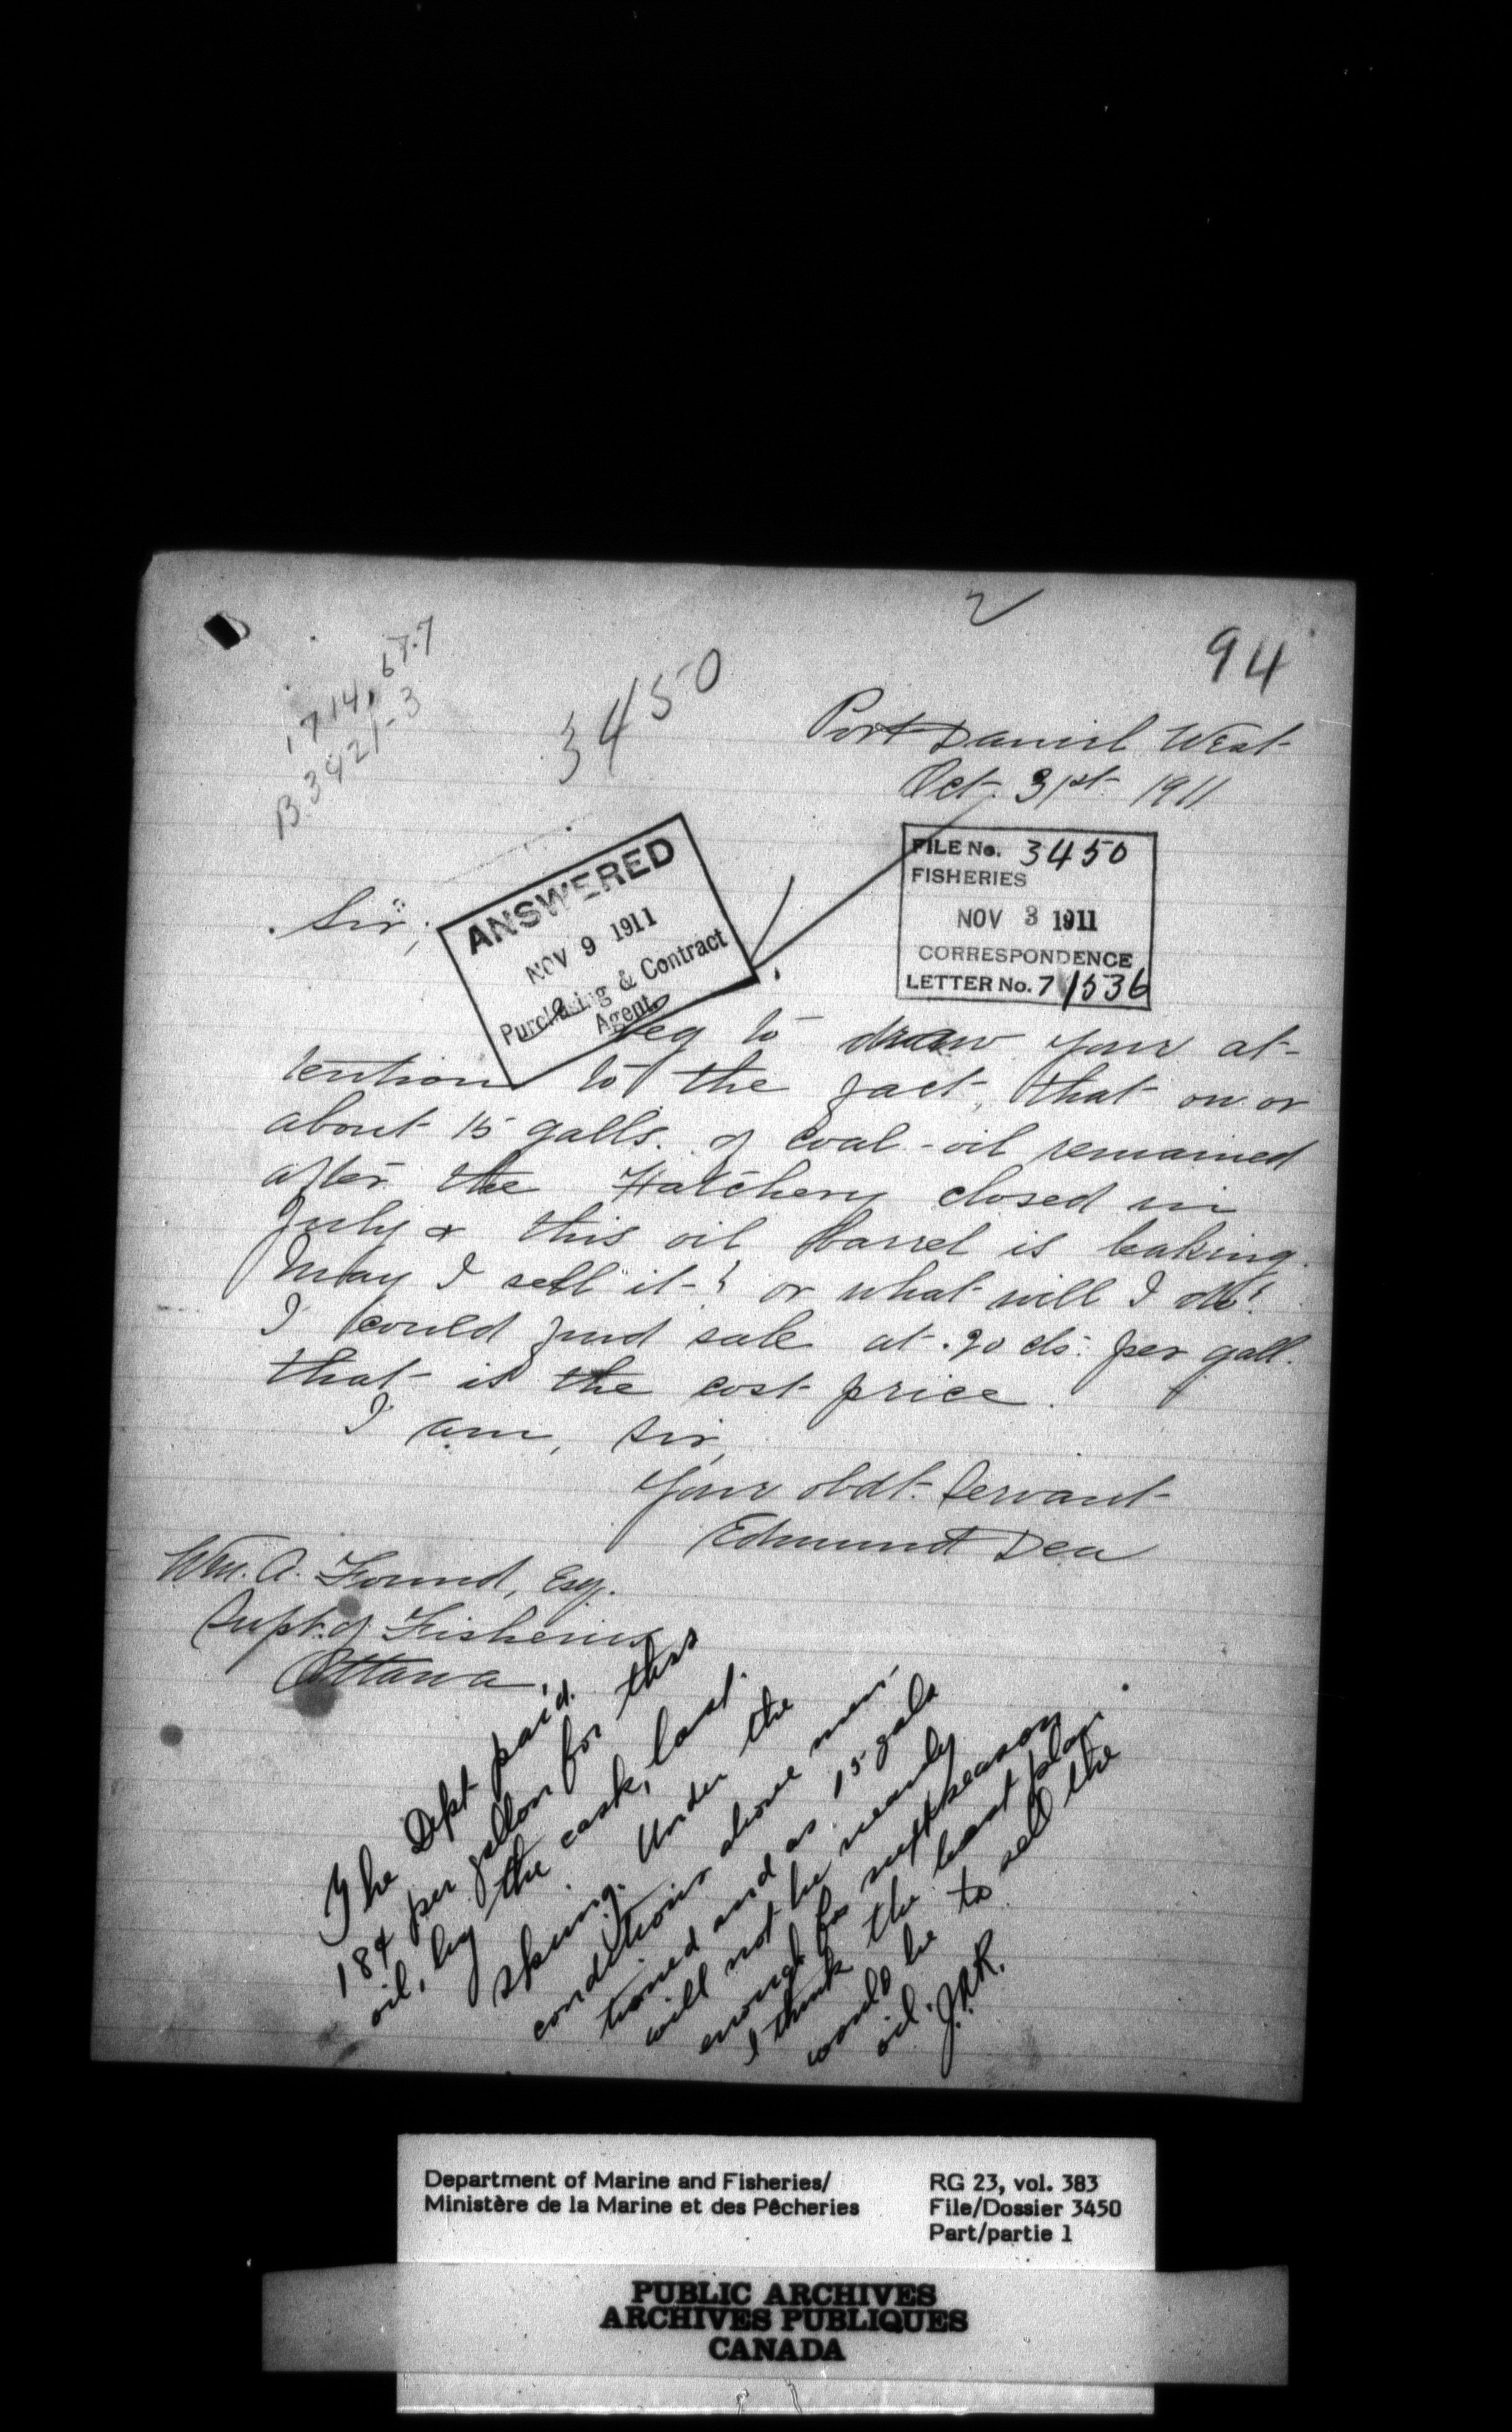 2
94
3450
Port Daniel West
Oct. 31st 1911
FILE No. 3450
FISHERIES
NOV 3 1911
CORRESPONDENCE
LETTER No. 71536
ANSWERED
NOV 9 1911
Purchasing & Contract
Agent
Sir;
I beg to draw your at-
tention to the fact, that on or
about 15 galls. of coal-oil remained
after the Hatchery closed in
July & this oil barrel is leaking.
May I sell it? or what will I do?
I could find sale at .20 cts. per gall.
that is the cost price.
I am, Sir,
Your obdt. Servant
Edmund Dea
Wm. A. Found, Esq.
Supt. of Fisheries
Ottawa.
The Dept paid
18¢ per gallon for this
oil, by the cask, last
spring. Under the
conditions above men-
tioned and as 15 gals
will not be nearly
enough for next season
I think the best plan
would be to sell the
oil. J.A.R.
Department of Marine and Fisheries/
Ministère de la Marine et des Pêcheries
RG 23, vol. 383
File/Dossier 3450
Part/partie 1
PUBLIC ARCHIVES
ARCHIVES PUBLIQUES
CANADA